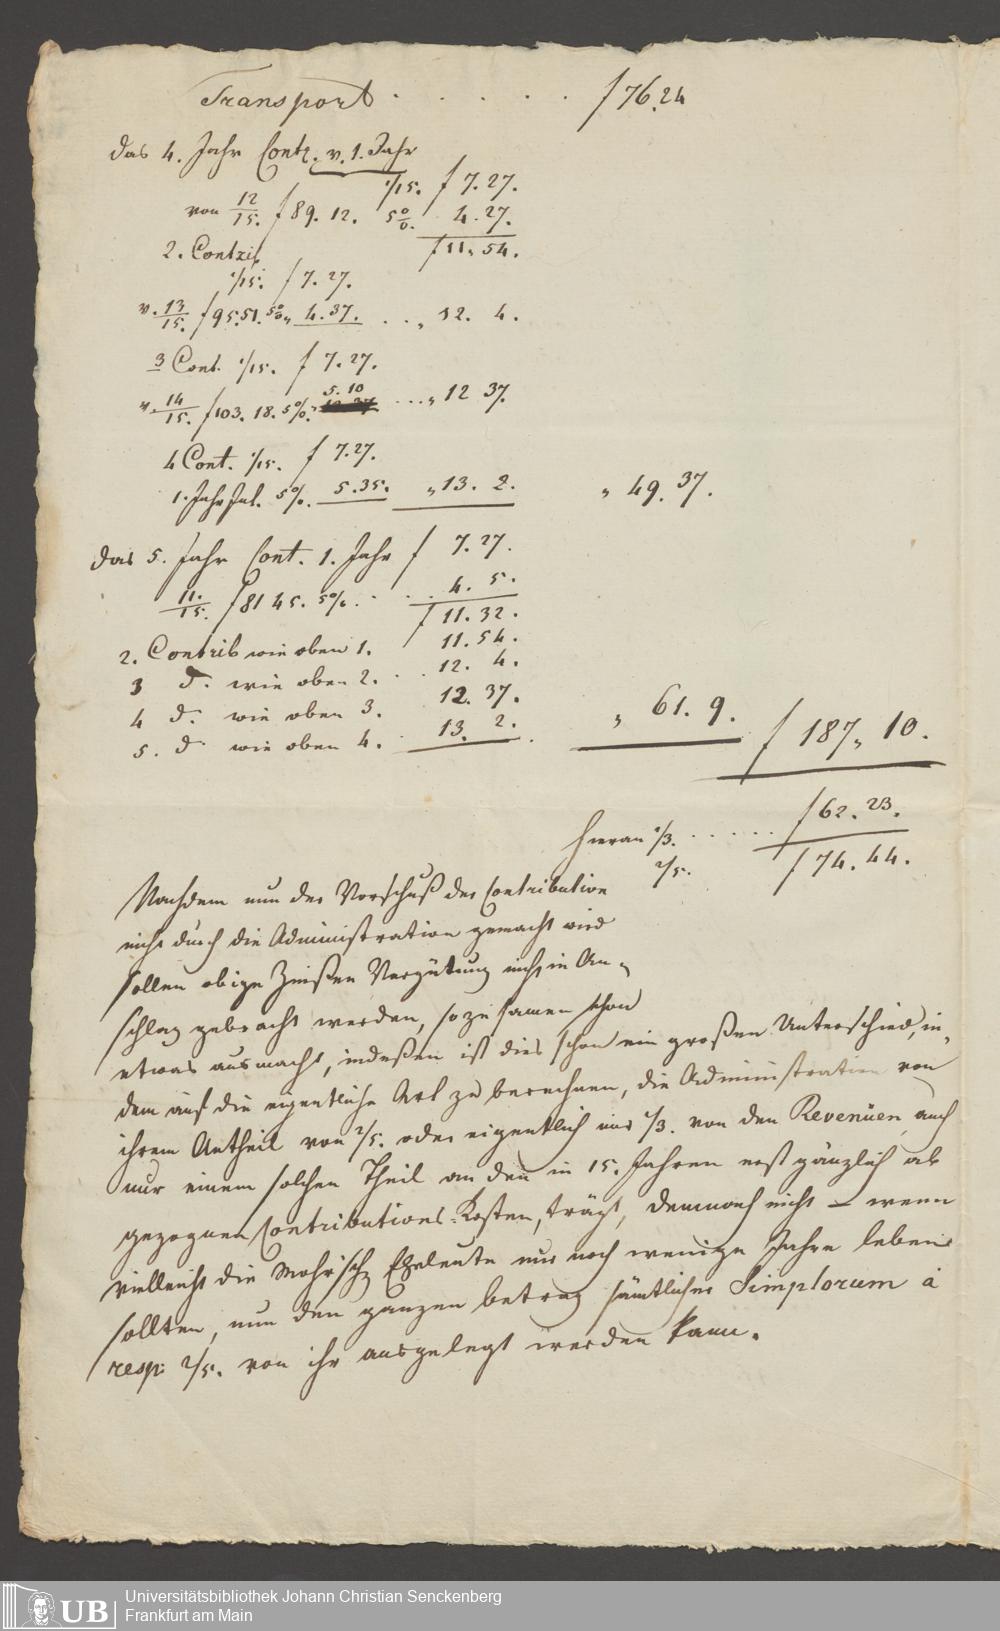 Transport . . . . . f 76.24
das 4. Jahr Contr. v. 1. Jahr
1/15. f 7.27.
von 12/15. f 89. 12. 5 % 4. 27.
f 11. 54.
2. Contrib
1/15. f 7. 27.
v. 13/15. f 95.51. 5% " 4. 37. . . " 12. 4.
3 Cont. 1/15. f 7. 27.
v. 14/15. f 103. 18. 5%. " 5. 10 . . . " 12 37.
4 Cont. 1/15. f 7.27.
1. Jahr Int. 5%. 5.35. " 13. 2. " 49. 37.
das 5. Jahr Cont. 1. Jahr f 7.27.
11./15. f 81 45. 5%. . . . 4. 5.
f 11. 32.
2. Contrib wie oben 1. 11. 54.
3 d. wie oben 2. . . 12. 4.
4 d. wie oben 3. 12. 37.
5. d. wie oben 4. . 13. 2. . " 61. 9. f 187. 10.
hieran 1/3. . . . . . f 62. 23.
2/5. f 74. 44.
Nachdem nun der Vorschuß der Contribution
nicht durch die Administration gemacht wird
sollen obige Zinßen Vergütung nicht in An-
schlag gebracht werden, so zusamen schon
etwas ausmacht, indeßen ist dies schon ein großen Unterschied, in-
dem auf die eigentliche Art zu berechnen, die Administration von
ihrem Antheil von 2/5. oder eigentlich nur 1/3. von den Revenüen auch
nur einem solchen Theil an den in 15. Jahren erst gänzlich ab
gezognen Contributions-Kosten, trägt, demnach nicht – wenn
vielleicht die Mohr'sche Eheleute nur noch wenige Jahre leben
sollten, nun den ganzen betrag sämtlicher Simplorum à
resp: 2/5. von ihr ausgelegt werden kann.
Universitätsbibliothek Johann Christian Senckenberg
Frankfurt am Main
UB